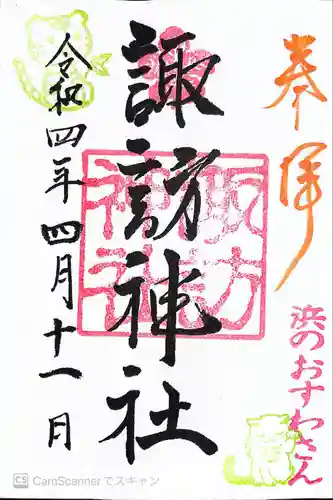 奉拝
浜のおすわさん
諏訪神社
諏方神社
令和四年四月十一日
CS CamScannerでスキャン